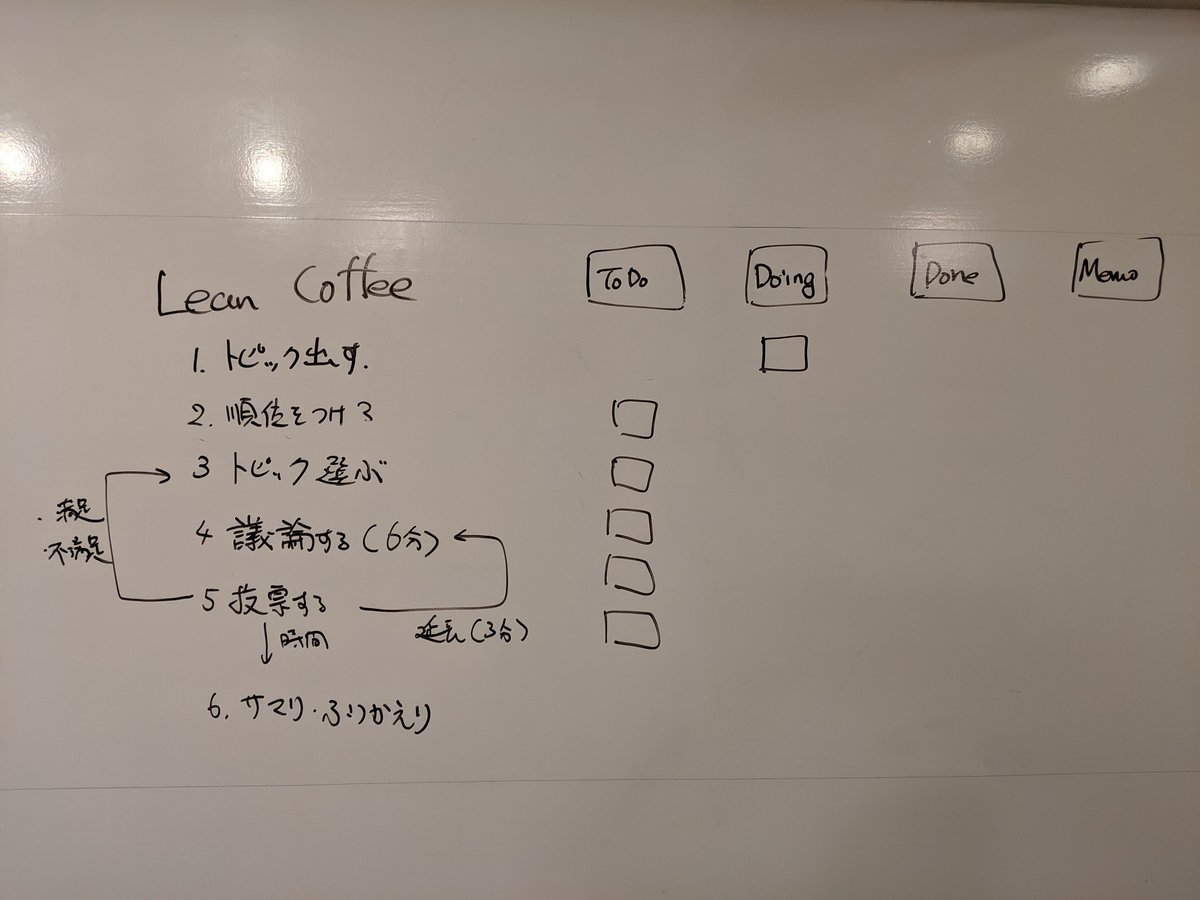 Lean Coffee
1. トピック出す.
2. 順位をつける
3 トピック選ぶ
4 議論する(6分)
5 投票する
・満足
・不満足
延長(3分)
↓時間
6. サマリ・ふりかえり
ToDo
Doing
Done
Memo